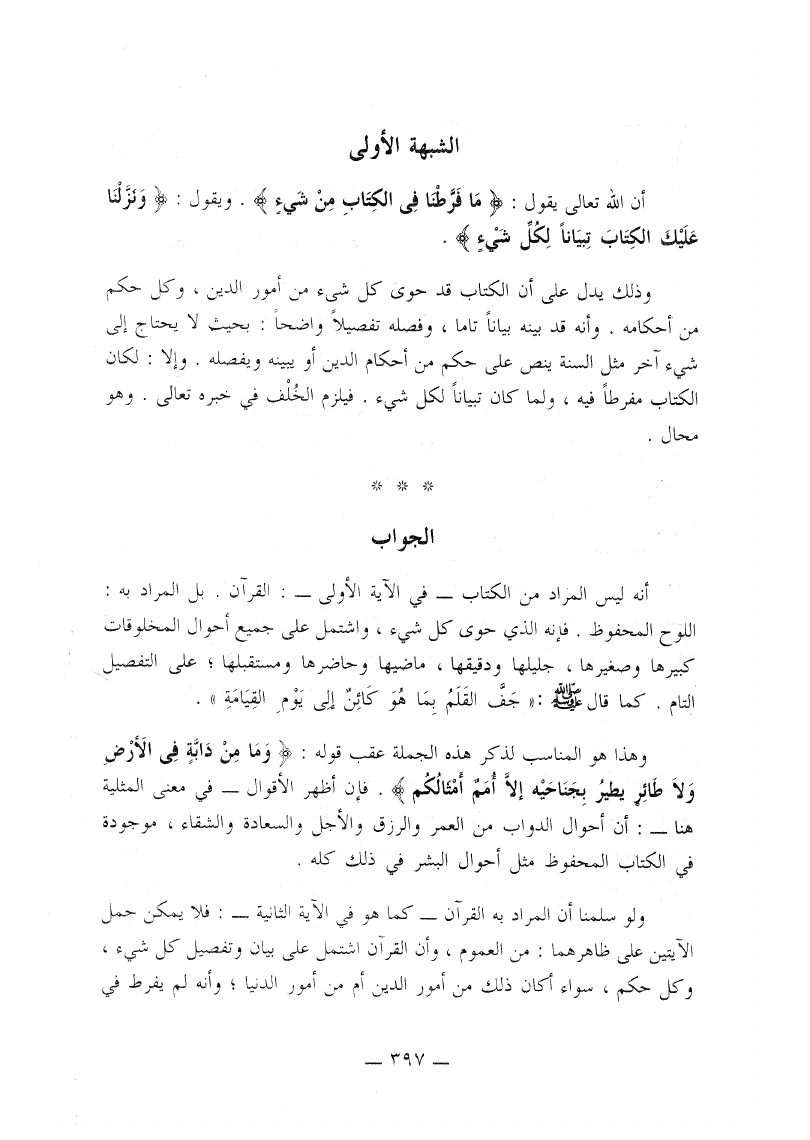 الشبهة الأولى
أن الله تعالى يقول : ﴿ مَا فَرَّطْنَا فِى الكِتَابِ مِنْ شَيءٍ ﴾ . ويقول : ﴿ وَنَزَّلْنَا
عَلَيْكَ الكِتَابَ تِبيَاناً لِكُلِّ شَيْءٍ ﴾ .
وذلك يدل على أن الكتاب قد حوى كل شيء من أمور الدين ، وكل حكم
من أحكامه . وأنه قد بينه بياناً تاما ، وفصله تفصيلاً واضحاً : بحيث لا يحتاج إلى
شيء آخر مثل السنة ينص على حكم من أحكام الدين أو يبينه ويفصله . وإلا : لكان
الكتاب مفرطاً فيه ، ولما كان تبياناً لكل شيء . فيلزم الخُلْف في خبره تعالى . وهو
محال .
* * *
الجواب
أنه ليس المراد من الكتاب ــ في الآية الأولى ــ : القرآن . بل المراد به :
اللوح المحفوظ . فإنه الذي حوى كل شيء ، واشتمل على جميع أحوال المخلوقات
كبيرها وصغيرها ، جليلها ودقيقها ، ماضيها وحاضرها ومستقبلها ؛ على التفصيل
التام . كما قال ﷺ :« جَفَّ القَلَمُ بِمَا هُوَ كَائِنٌ إلى يَوْمِ القِيَامَةِ » .
وهذا هو المناسب لذكر هذه الجملة عقب قوله : ﴿ وَمَا مِنْ دَابَّةٍ فِى الأَرْضِ
وَلاَ طَائِرٍ يطيرُ بِجَنَاحَيْه إلاَّ أُمَمٌ أَمْثَالُكُم ﴾ . فإن أظهر الأقوال ــ في معنى المثلية
هنا ــ : أن أحوال الدواب من العمر والرزق والأجل والسعادة والشقاء ، موجودة
في الكتاب المحفوظ مثل أحوال البشر في ذلك كله .
ولو سلمنا أن المراد به القرآن ــ كما هو في الآية الثانية ــ : فلا يمكن حمل
الآيتين على ظاهرهما : من العموم ، وأن القرآن اشتمل على بيان وتفصيل كل شيء ،
وكل حكم ، سواء أكان ذلك من أمور الدين أم من أمور الدنيا ؛ وأنه لم يفرط في
ــ ٣٩٧ ــ